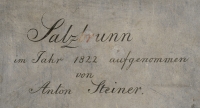 Salzbrunn
im Jahr 1822 aufgenommen
von
Anton Steiner.